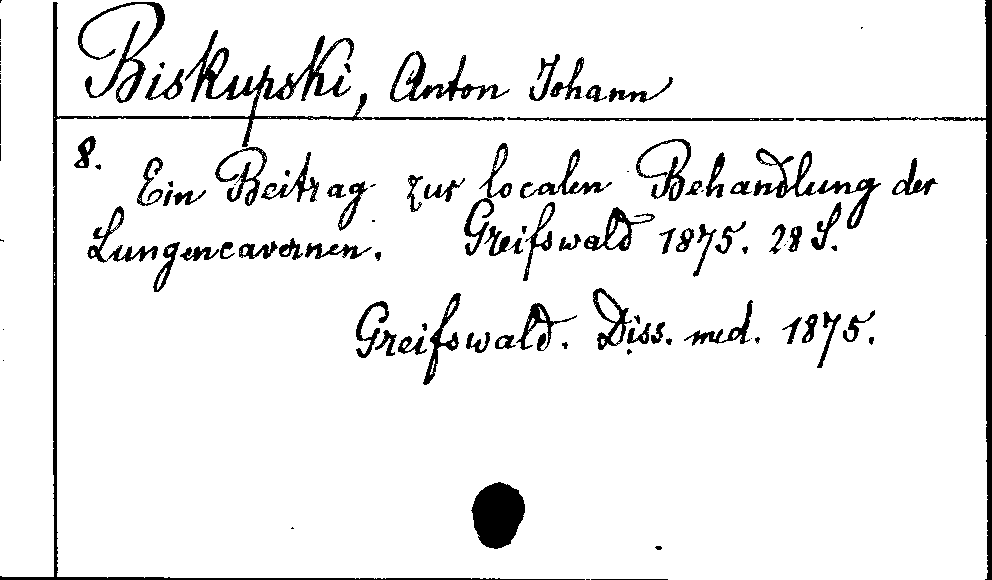 Biskupski, Anton Johann
8.
Ein Beitrag zur localen Behandlung der
Lungencavernen. Greifswald 1875. 28 S.
Greifswald. Diss. med. 1875.